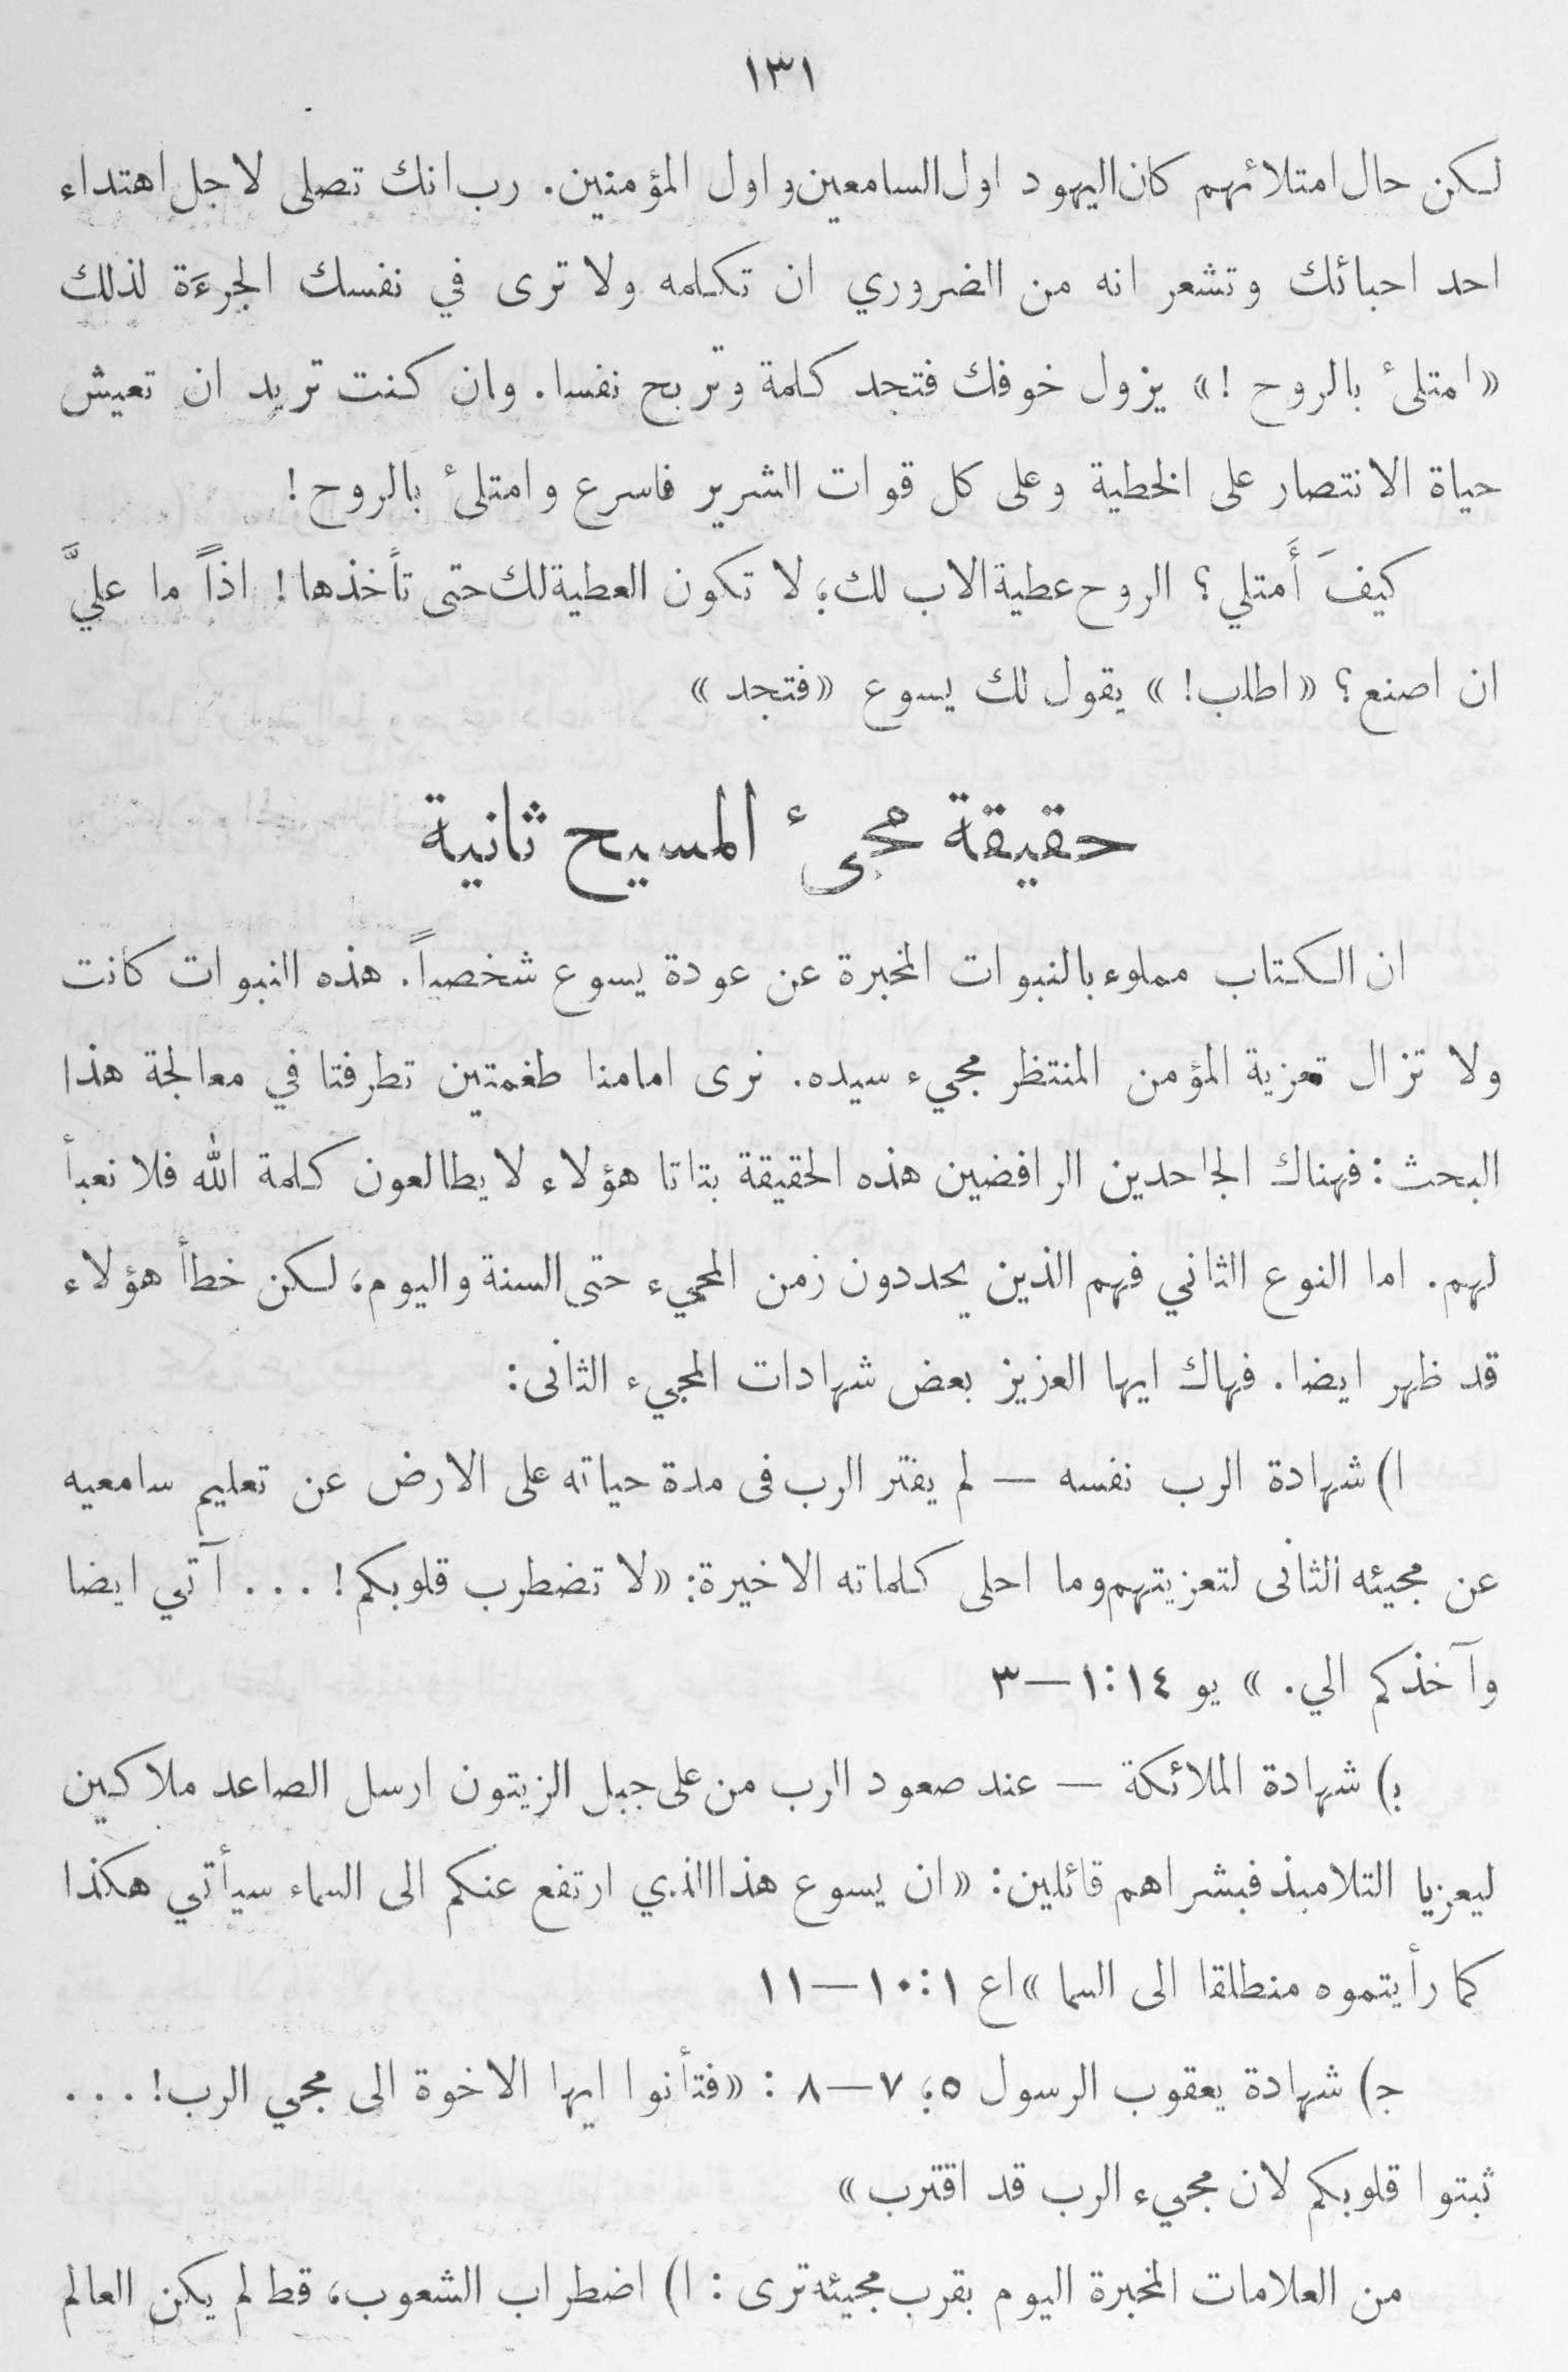 ١٣١
لكن حال امتلائهم كان اليهود اول السامعين واول المؤمنين. رب انك تصلى لاجل اهتداء
احد احبائك وتشعر انه من الضروري ان تكلمه ولا ترى في نفسك الجرءَة لذلك
«امتلئ بالروح !» يزول خوفك فتجد كلمة وتربح نفسا. وان كنت تريد ان تعيش
حياة الانتصار على الخطية وعلى كل قوات الشرير فاسرع وامتلئ بالروح !
كيفَ أَمتلي؟ الروح عطية الاب لك؛ لا تكون العطية لك حتى تأخذها! اذاً ما عليَّ
ان اصنع؟ «اطلب! » يقول لك يسوع «فتجد »
حقيقة مجىء المسيح ثانية
ان الكتاب مملوء بالنبوات المخبرة عن عودة يسوع شخصياً. هذه النبوات كانت
ولا تزال تعزية المؤمن المنتظر مجيء سيده. نرى امامنا طغمتين تطرفتا في معالجة هذا
البحث: فهناك الجاحدين الرافضين هذه الحقيقة بتاتا هؤلاء لا يطالعون كلمة الله فلا نعبأ
لهم. اما النوع الثاني فهم الذين يحددون زمن المجيء حتى السنة واليوم، لكن خطأ هؤلاء
قد ظهر ايضا. فهاك ايها العزيز بعض شهادات المجيء الثانى:
ا) شهادة الرب نفسه — لم يفتر الرب فى مدة حياته على الارض عن تعليم سامعيه
عن مجيئه الثانى لتعزيتهم وما احلى كلماته الاخيرة: «لا تضطرب قلوبكم! ... آتي ايضا
وآخذكم الي. » يو ١٤:١—٣
ب) شهادة الملائكة — عند صعود الرب من على جبل الزيتون ارسل الصاعد ملاكين
ليعزيا التلاميذ فبشراهم قائلين: «ان يسوع هذا الذي ارتفع عنكم الى السماء سيأتي هكذا
كما رأيتموه منطلقا الى السما» اع ١:١٠—١١
ج) شهادة يعقوب الرسول ٥؛ ٧—٨ : «فتأنوا ايها الاخوة الى مجي الرب! ...
ثبتوا قلوبكم لان مجيء الرب قد اقترب»
من العلامات المخبرة اليوم بقرب مجيئه ترى : ا) اضطراب الشعوب، قط لم يكن العالم